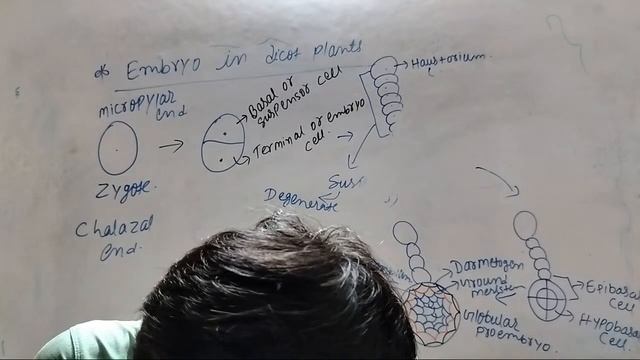 * Embryo in dicot plants
Micropylar
end
Zygote.
Chalazal
end.
Basal or
suspensor cell
Terminal or embryo
cell.
Haustorium.
Degenerate
Darmetogen
Ground
Globular
proembryo.
Epibasal
cell
Hypobasal
cell.